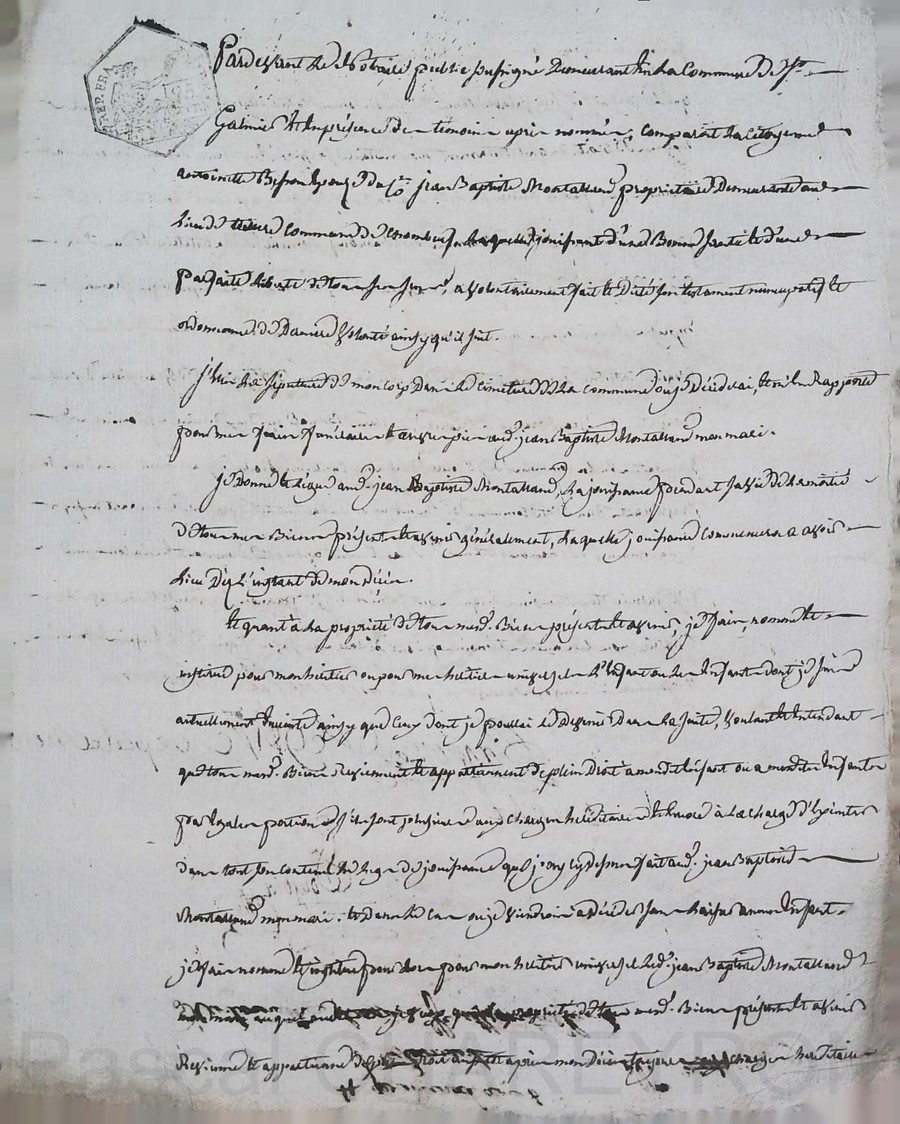 Pardevant Le Notaire public Soussigné Demeurant En La Commune De St
Galmier Et En présence De témoins après nommés, comparoit La Citoyenne
antoinette épouse Du Cen jean Baptiste Montalland propriétaire Demeurante au
Lieu de commune de chambeuf Laquelle jouissant d'une Bonne Santé et d'une
parfaite Liberté de tous ses sens, a volontairement fait et Dicté son testament nuncupatif et
ordonnance de Derniere volonté ainsy qu'il suit.
j'Elis La Sépulture de mon corps Dans Le Cimetiere De La commune ou je Décéderai, Et m'en Rapporte
pour mes frais funéraires Et œuvres pies aud. jean Baptiste Montalland mon mari.
je Donne Et Légue aud. jean Baptiste Montalland, La jouissance pendant sa vie de La moitié
de tous mes Biens présents Et avenir généralement, Laquelle jouissance commencera a avoir
Lieu Dès L'instant de mon Décès.
Et quant à La propriété de tous mesd. Biens présents Et avenir, je fais, nomme Et
institue pour mon héritier ou pour mes héritiers universels L'Enfant ou Les Enfants dont je suis
actuellement Enceinte ainsy que Ceux dont je pourrai Le Devenir Dans La suite, voulant Et Entendant
que tous mesd. Biens Reviennent Et appartiennent de plein Droit a mondit Enfant ou a mesdits Enfants
par égales portions S'ils sont plusieurs aux charges héréditaires Et Encore à La charge d'Exécuter
dans tout son contenu Le Legs de jouissance que j'ay cy dessus fait aud. jean Baptiste
Montalland mon mari. Et Dans Le Cas ou je viendrois a Décéder sans Laisser aucun Enfant.
je fais nomme Et institue pour Lors pour mon héritier universel Led. jean Baptiste Montalland
mon mari auquel je veux que la propriété de tous mesd. Biens présents Et avenir
Revienne Et appartienne de plein Droit après mon Décès charges héréditaires